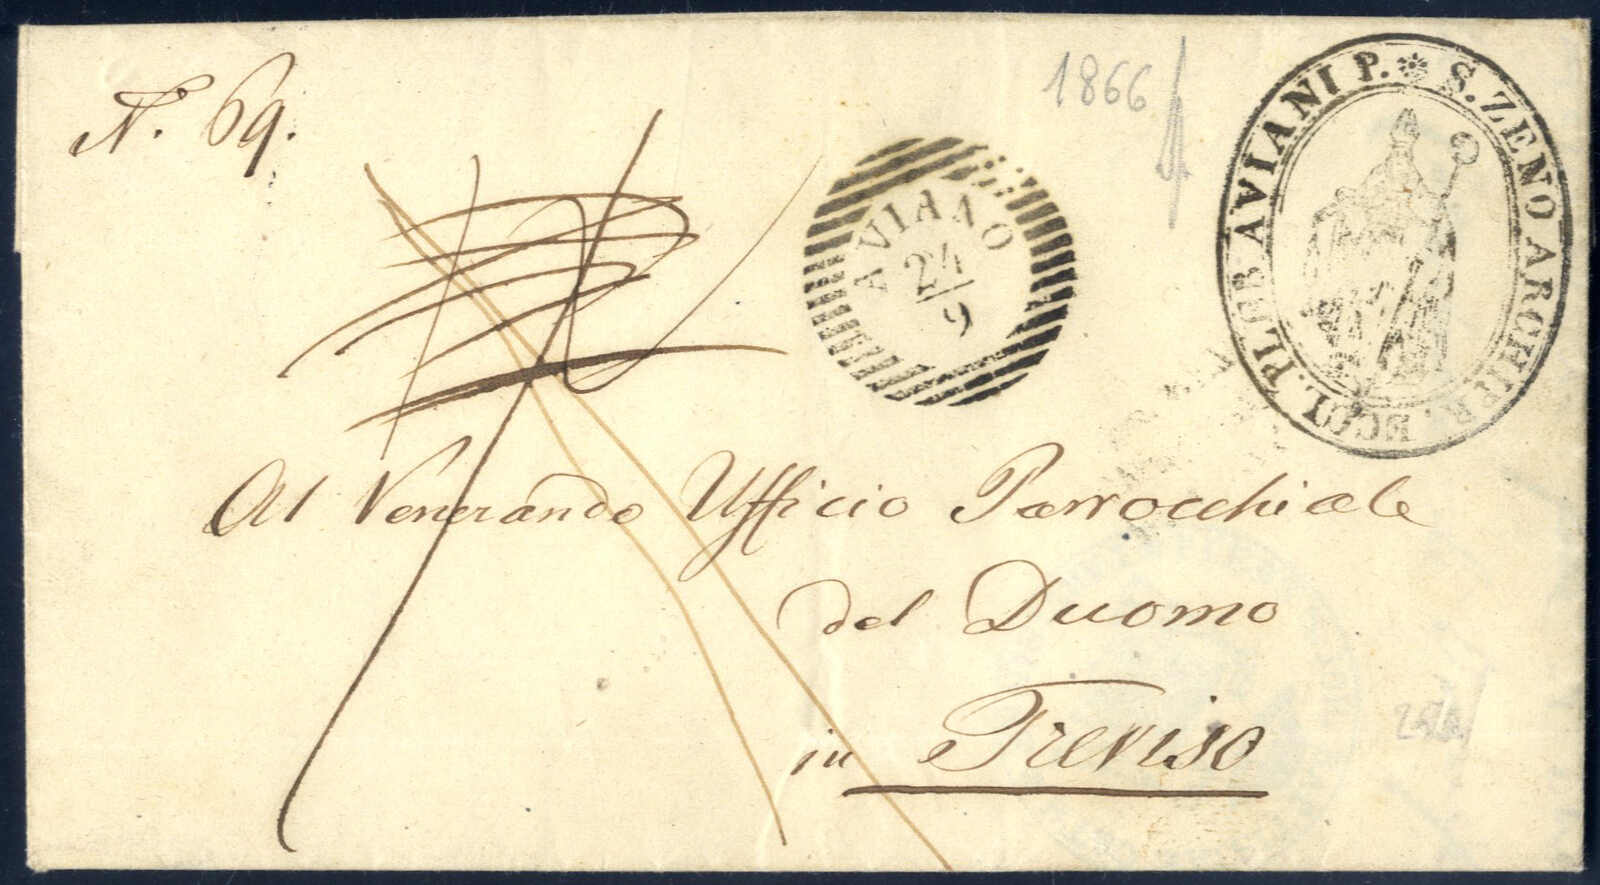 N.º 69.
1866
S. ZENO ARCHIP. ECCL. PLEB AVIANI P.
AVIANO
24/9
Al Venerando Ufficio Parrocchiale
del Duomo
in Treviso